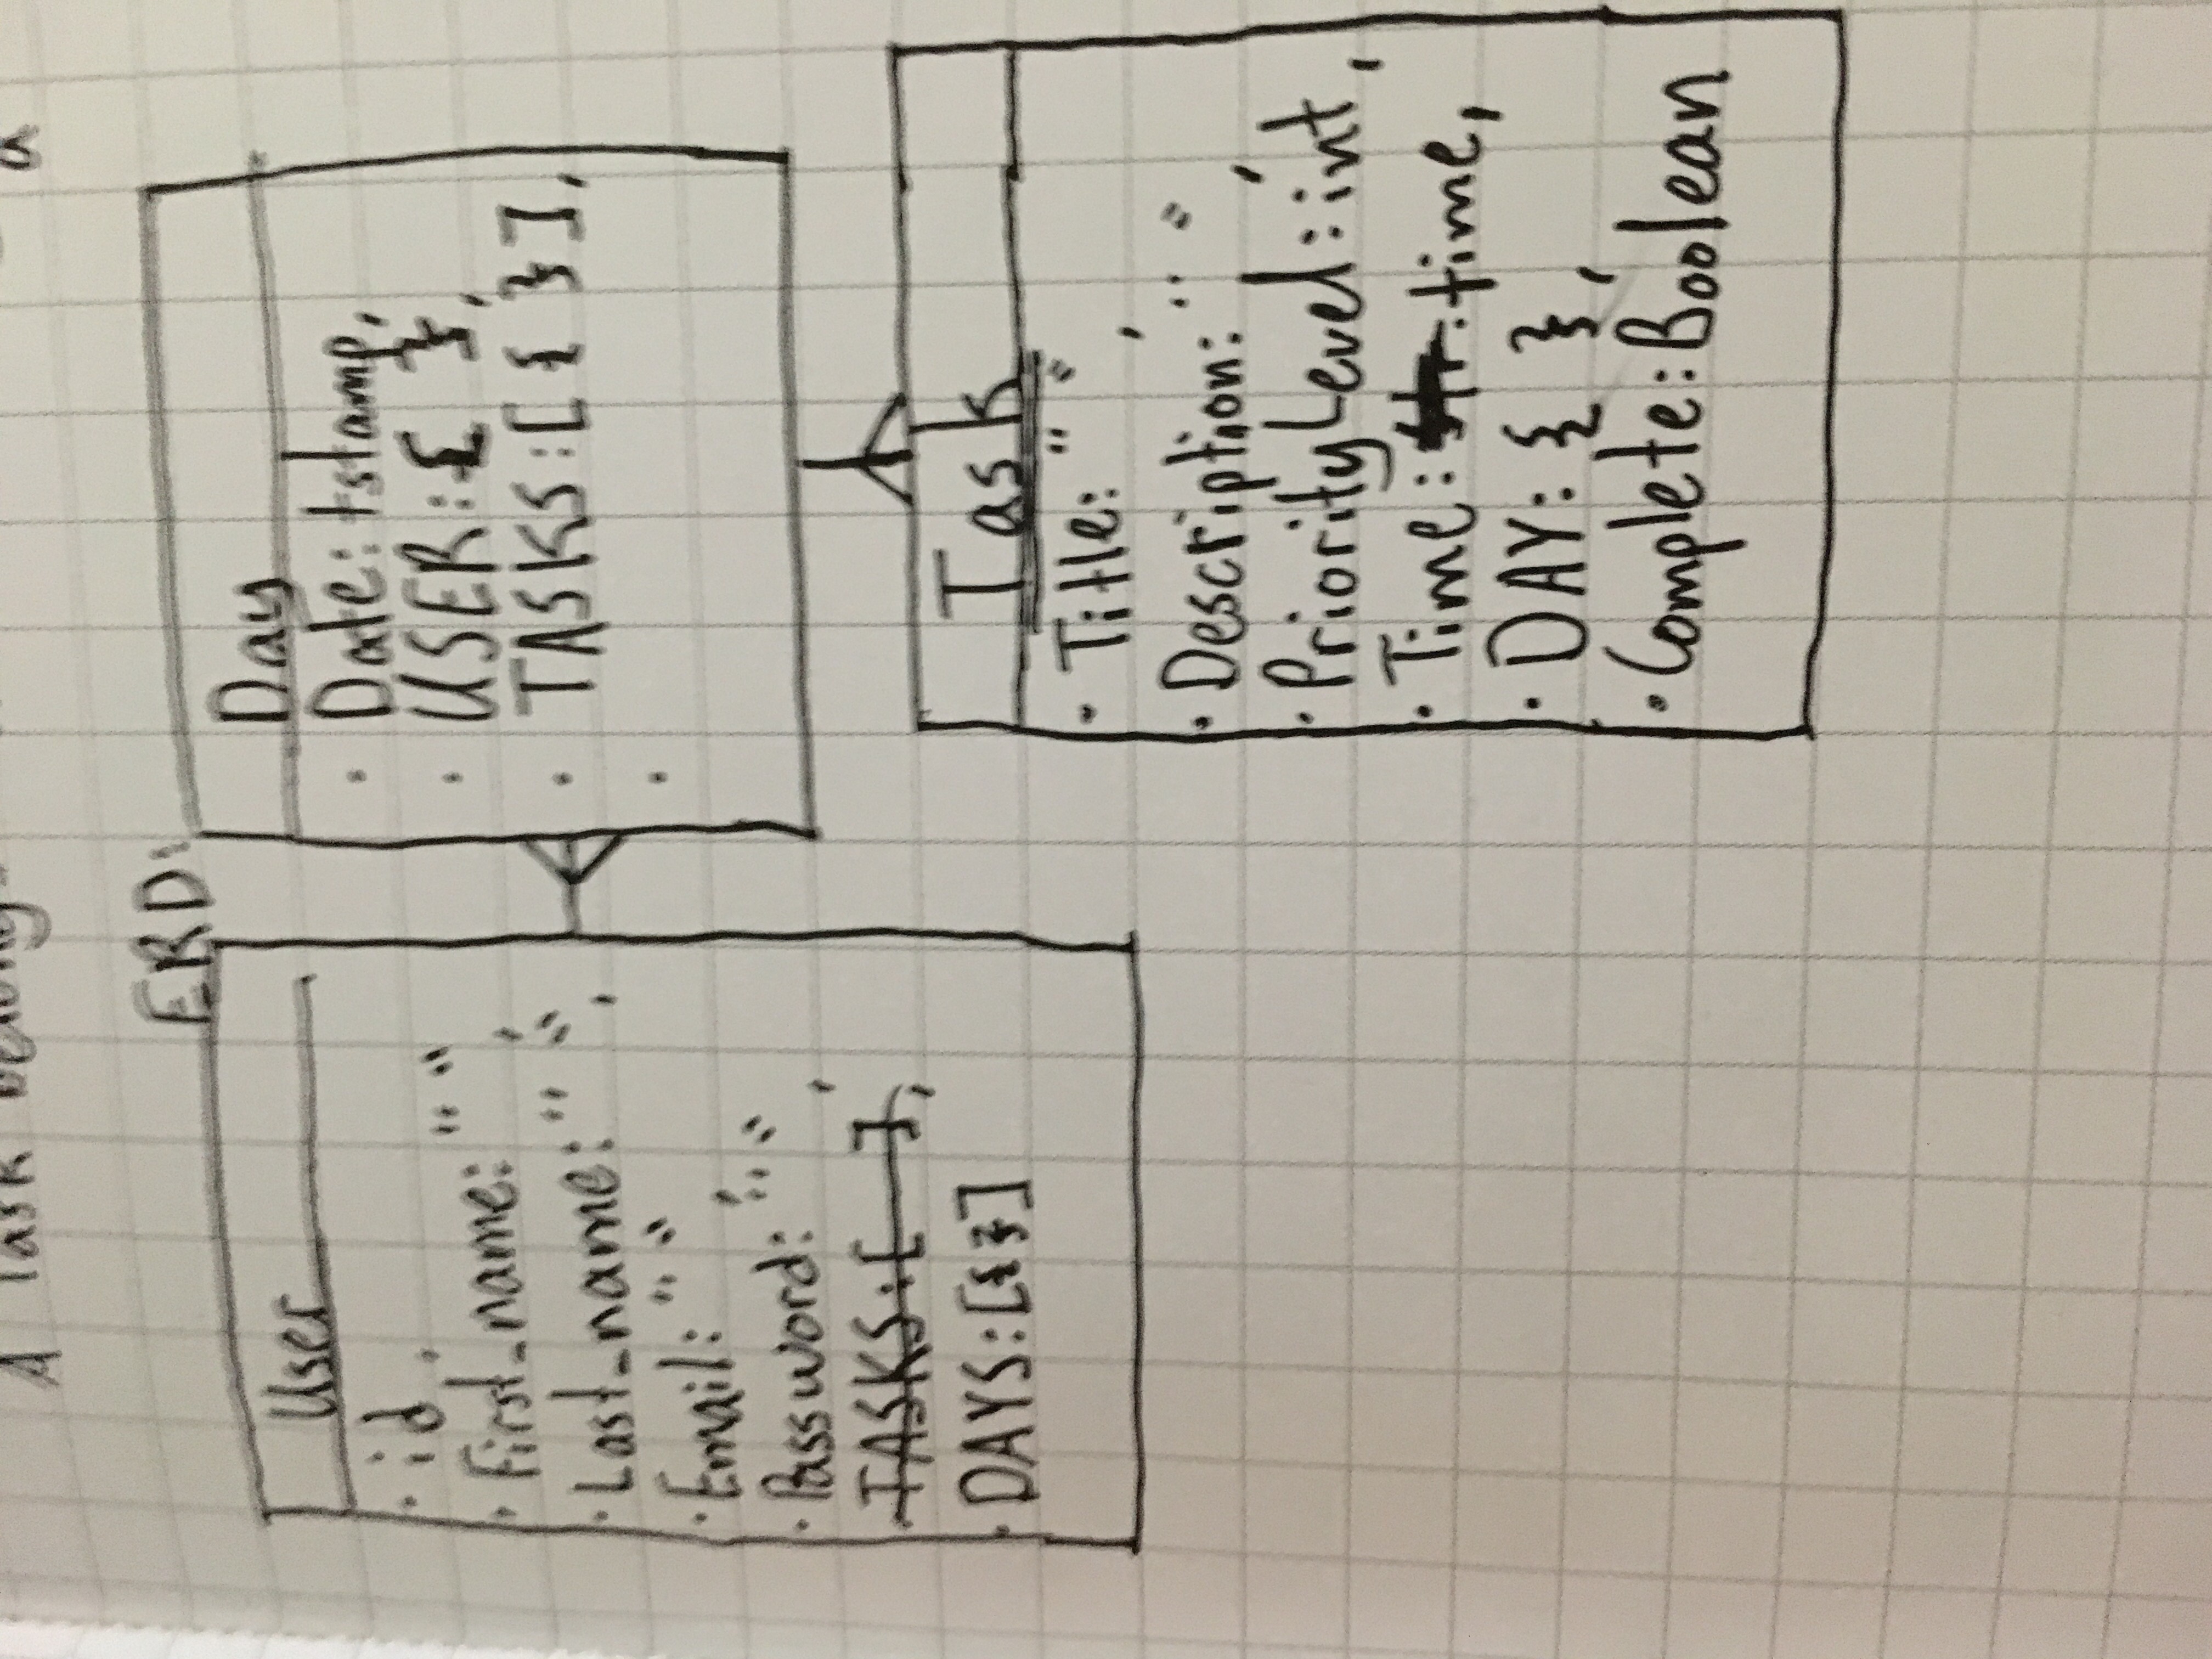 A Task belong
a
ERD:
User
· id .
· First_name: " ",
· Last_name: " ",
· Email: " ",
· Password: " ",
· TASKS:[ ],
· DAYS:[{}]
Day
· Date: tstamp,
· USER: { },
· TASKS:[{ }],
·
Task
· Title: " ",
· Description: " ",
· PriorityLevel: int,
· Time: str. time,
· DAY: { },
· Complete: Boolean